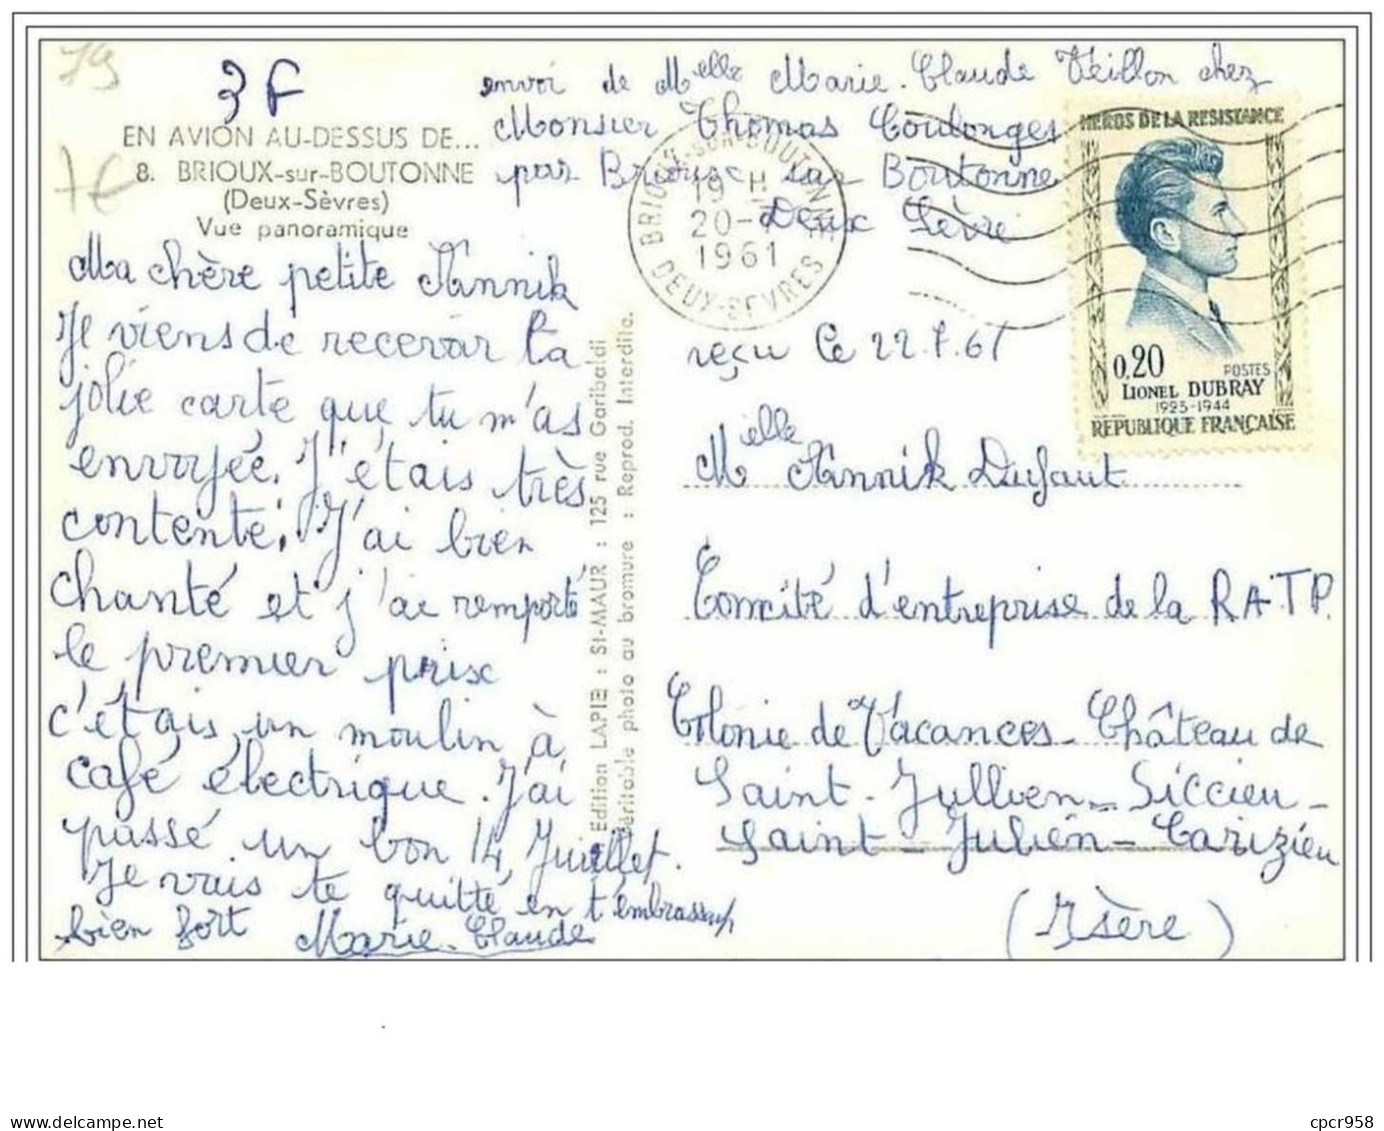 79
3F
7€
EN AVION AU-DESSUS DE...
8. BRIOUX-sur-BOUTONNE
(Deux-Sèvres)
Vue panoramique
envoi de Melle Marie-Claude Veillon chez
Monsier Thomas Coulonges
par Brioux sur Boutonne
Deux Sèvre
BRIOUX-SUR-BOUTONNE
19 H
20-7
1961
DEUX-SEVRES
HEROS DE LA RESISTANCE
0,20
POSTES
LIONEL DUBRAY
1923-1944
REPUBLIQUE FRANÇAISE
Ma chère petite Annik
Je viens de recevoir ta
jolie carte que tu m'as
envoyée. J'étais très
contente. J'ai bien
chanté et j'ai remporté
le premier prix
c'étais un moulin à
café électrique. J'ai
passé un bon 14 Juillet.
Je vais te quitté en t'embrassant
bien fort Marie-Claude
Edition LAPIE : St-MAUR : 125 rue Garibaldi
Véritable photo au bromure : Reprod. Interdite.
reçu le 22.7.61
Melle Annik Dufaut
Comité d'entreprise de la R.A.T.P.
Colonie de Vacances - Château de
Saint-Jullien - Siccieu -
Saint-Julien-Carizieu
(Isère)
cpcr958